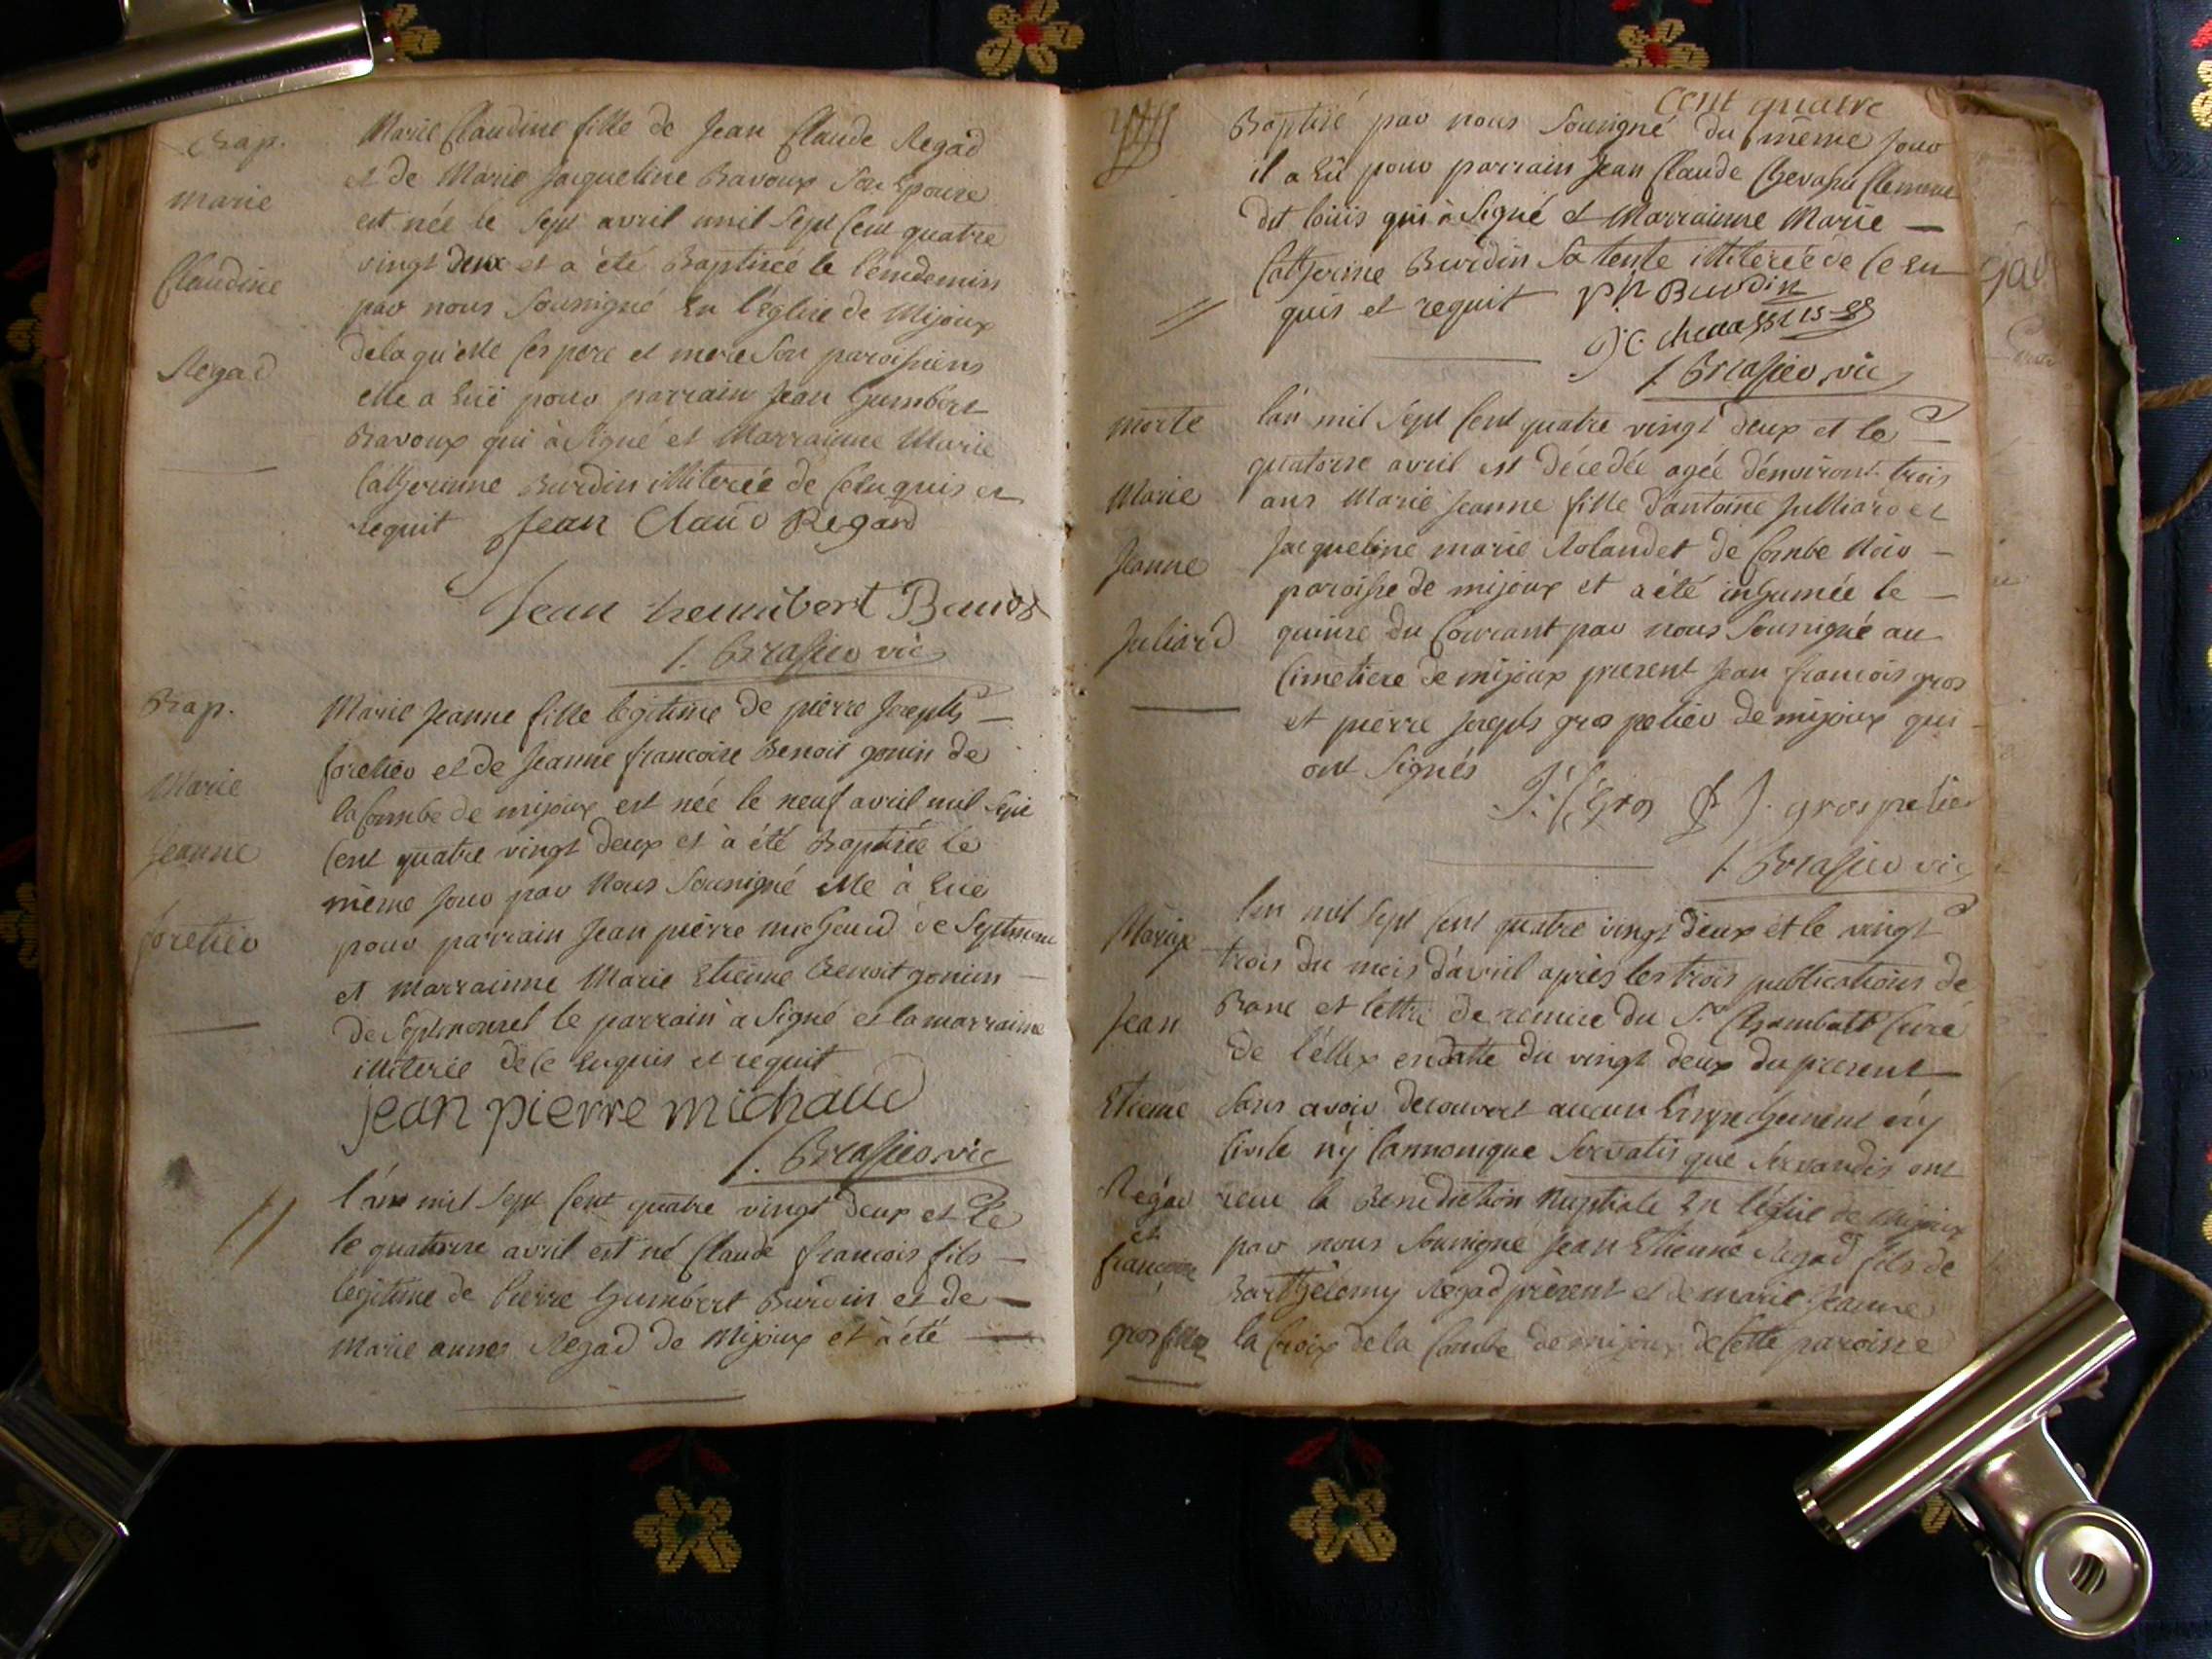 Bap.
Marie
Claudine
Regad
Marie Claudine fille de Jean Claude Regad
et de Marie Jacqueline Bavoux Son Epouse
est née le Sept avril mil Sept Cent quatre
vingt deux et a été Baptiseé le lendemin
par nous Sousigné En l'église de Mijoux
delaqu'elle Ses pere et mere Son paroissiens
elle a Eüe pour parrain Jean humbert
Bavoux qui à Signé et Marrainne Marie
Catherinne Burdin illitereé de Ce enquis et
requit Jean Claud Regard
Jean heumbert
J. Brasier vic
Bap.
Marie
Jeanne
forestier
Marie Jeanne fille legitime de pierre Joseph
forestier et de Jeanne francoise Benoit gonin de
la Combe de mijoux est née le neuf avril mil Sept
Cent quatre vingt deux et à été Baptisée le
même Jour par Nous Sousigné elle à Eüe
pour parrain Jean pierre michaud de
et marrainne Marie Etienne Benoit gonin
de Septmoncel le parrain à Signé et la marrainne
illiterée de Ce Enquis et requit
jean pierre michaud
J. Brasier vic
l'an mil Sept Cent quatre vingt deux et le
le quatorze avril est né Claude francois fils
legitime de Pierre humbert Burdin et de
Marie anne Regad de Mijoux et à été
Cent quatre
Baptisé par nous Sousigné du même Jour
il a Eü pour parrain Jean Claude
dit louis qui à Signé et Marrainne Marie
Catherine Burdin Sa tente illitereé de Ce En
quis et requit P h Burdin
J. Brasier vic
morte
Marie
Jeanne
Juliard
lan mil Sept Cent quatre vingt deux et le
quatorze avril est décedée ageé d'environt trois
ans Marie Jeanne fille d'antoine Julliard et
Jacqueline marie Rolandet de Combe Noir
paroisse de mijoux et a été inhumée le
quinze du Courant par nous Sousigné au
Cimetiere de mijoux present Jean francois gros
et pierre Joseph gros pelier de mijoux qui
ont Signés
J. f Gros P J. gros pelier
J. Brasier vic
Mariage
Jean
Etienne
Regad
et
francoise
lan mil Sept Cent quatre vingt deux et le vingt
trois du mois d'avril après les trois publications de
Banc et lettre de remise du Sr Curé
de en datte du vingt deux du present
Sans avoir decouvert aucun Empechement n'y
Civile n'y Cannonique Servatis que Servandis ont
reçue la Benediction Nuptiale En l'église de Mijoux
par nous Sousigné Jean Etienne Regad fils de
Barthelemy Regad présent et de marie Jeanne
la Croix de la Combe de mijoux de Cette paroisse